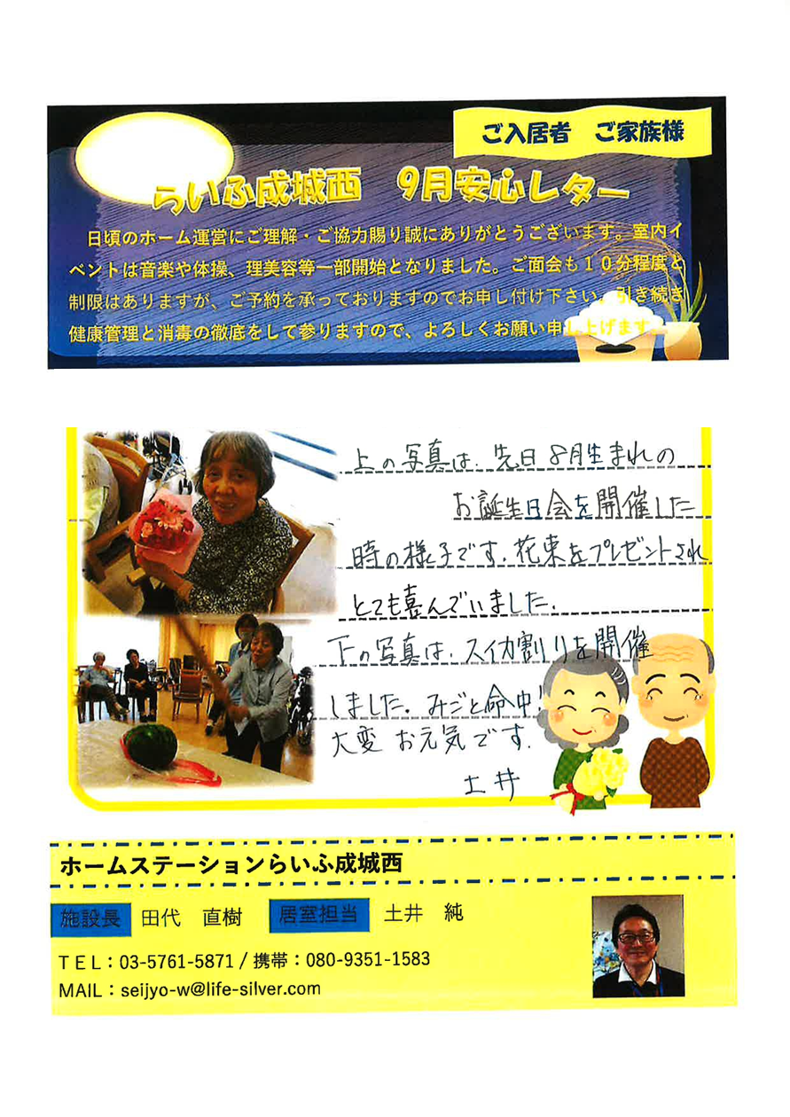 ご入居者　ご家族様
らいふ成城西　9月安心レター
日頃のホーム運営にご理解・ご協力賜り誠にありがとうございます。室内イ
ベントは音楽や体操、理美容等一部開始となりました。ご面会も１０分程度と
制限はありますが、ご予約を承っておりますのでお申し付け下さい。引き続き
健康管理と消毒の徹底をして参りますので、よろしくお願い申し上げます。
上の写真は、先日8月生まれの
お誕生日会を開催した
時の様子です。花束をプレゼントされ
とても喜んでいました。
下の写真は、スイカ割りを開催
しました。みごと命中!
大変お元気です。
土井
ホームステーションらいふ成城西
施設長　田代　直樹　居室担当　土井　純
ＴＥＬ：03-5761-5871 / 携帯：080-9351-1583
MAIL：seijyo-w@life-silver.com